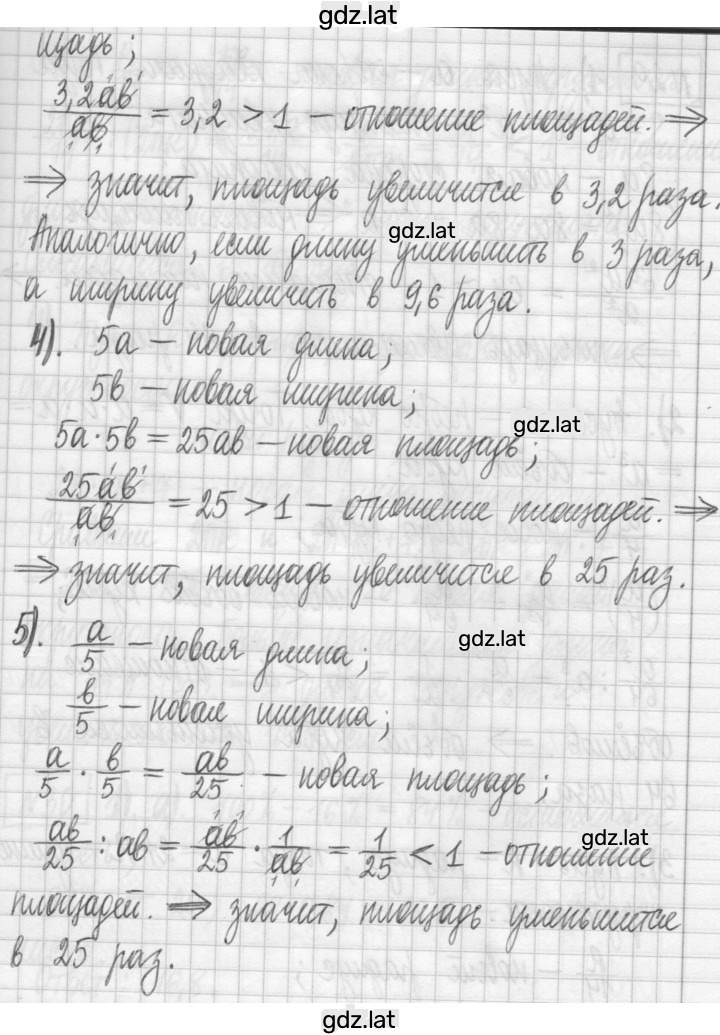 gdz.lat
щадь;
3,2ав/ав = 3,2 > 1 – отношение площадей. ⇒
⇒ значит, площадь увеличится в 3,2 раза.
gdz.lat
Аналогично, если длину уменьшить в 3 раза,
а ширину увеличить в 9,6 раза.
4). 5а – новая длина;
5в – новая ширина;
gdz.lat
5а·5в = 25ав – новая площадь;
25ав/ав = 25 > 1 – отношение площадей. ⇒
⇒ значит, площадь увеличится в 25 раз.
5). а/5 – новая длина;
gdz.lat
в/5 – новая ширина;
а/5 · в/5 = ав/25 – новая площадь;
ав/25 : ав = ав/25 · 1/ав = 1/25 < 1 – отношение
gdz.lat
площадей. ⇒ значит, площадь уменьшится
в 25 раз.
gdz.lat